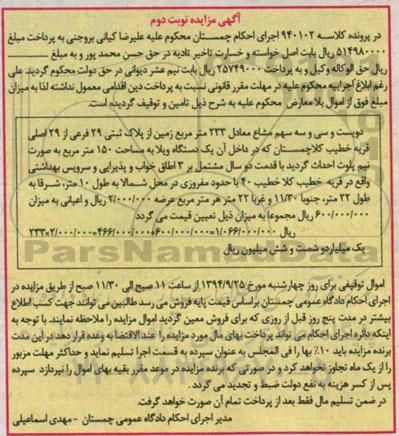 آگهی مزایده نوبت دوم
در پرونده کلاسه ۹۴۰۱۰۲ اجرای احکام چمستان محکوم علیه علیرضا کیانی بروجنی به پرداخت مبلغ
۵۱۴۹۸۰۰۰۰ ریال بابت اصل خواسته و خسارت تاخیر تادیه در حق حسن محمد پور و به مبلغ
ریال حق الوکاله وکیل و به پرداخت ۲۵۷۴۹۰۰۰ ریال بابت نیم عشر دیوانی در حق دولت محکوم گردید. علی
رغم ابلاغ اجراییه محکوم علیه در مهلت مقرر قانونی نسبت به پرداخت دین اقدامی معمول نداشته لذا به میزان
مبلغ فوق از اموال بلا معارض محکوم علیه به شرح ذیل تامین و توقیف گردیده است.
دویست و سی و سه سهم مشاع معادل ۲۳۳ متر مربع زمین از پلاک ثبتی ۲۹ فرعی از ۲۹ اصلی
قریه خطیب کلاچمستان که در داخل آن یک دستگاه ویلا به مساحت ۱۵۰ متر مربع به صورت
نیم پلوت احداث گردید با قدمت ده سال مشتمل بر ۳ اطاق خواب و پذیرایی و سرویس بهداشتی
واقع در قریه خطیب کلا خطیب ۴۰ با حدود مفروزی در محل شمالا به طول ۱۰ متر، شرقا به
طول ۲۲ متر، جنوبا ۱۱/۳۰ و غربا ۲۲ متر هر متر مربع عرصه ۲/۰۰۰/۰۰۰ ریال و اعیانی به میزان
۶۰۰/۰۰۰/۰۰۰ ریال مجموعا به میزان ذیل تعیین قیمت می گردد
۲۳۳×۲/۰۰۰/۰۰۰=۴۶۶/۰۰۰/۰۰۰+۶۰۰/۰۰۰/۰۰۰=۱/۰۶۶/۰۰۰/۰۰۰ ریال
یک میلیارد و شصت و شش میلیون ریال
ParsNamadData
اموال توقیفی برای روز چهارشنبه مورخ ۱۳۹۴/۹/۲۵ از ساعت ۱۱ صبح الی ۱۱/۳۰ صبح از طریق مزایده در
اجرای احکام دادگاه عمومی چمستان براساس قیمت پایه فروش می رسد طالبین می توانند جهت کسب اطلاع
بیشتر در مدت پنج روز قبل از روزی که برای فروش معین گردید اموال مزایده را ملاحظه نمایند. با توجه به
اینکه دائره اجرای احکام می تواند پرداخت بهای مال مورد مزایده را عندالاقتضا به وعده قرار دهد در این مدت
برنده مزایده باید ۱۰٪ بها را فی المجلس به عنوان سپرده به قسمت اجرا تسلیم نماید و حداکثر مهلت مزبور
را از یک ماه تجاوز نخواهد کرد و در صورتی که برنده مزایده در موعد مقرر بقیه بهای اموال را نپردازد سپرده
پس از کسر هزینه به نفع دولت ضبط و تجدید می گردد.
در ضمن تسلیم مال فقط بعد از پرداخت تمام آن صورت خواهد گرفت.
مدیر اجرای احکام دادگاه عمومی چمستان - مهدی اسماعیلی